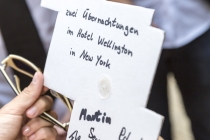 zwei Übernachtungen
im Hotel Wellington
in New York
Martin